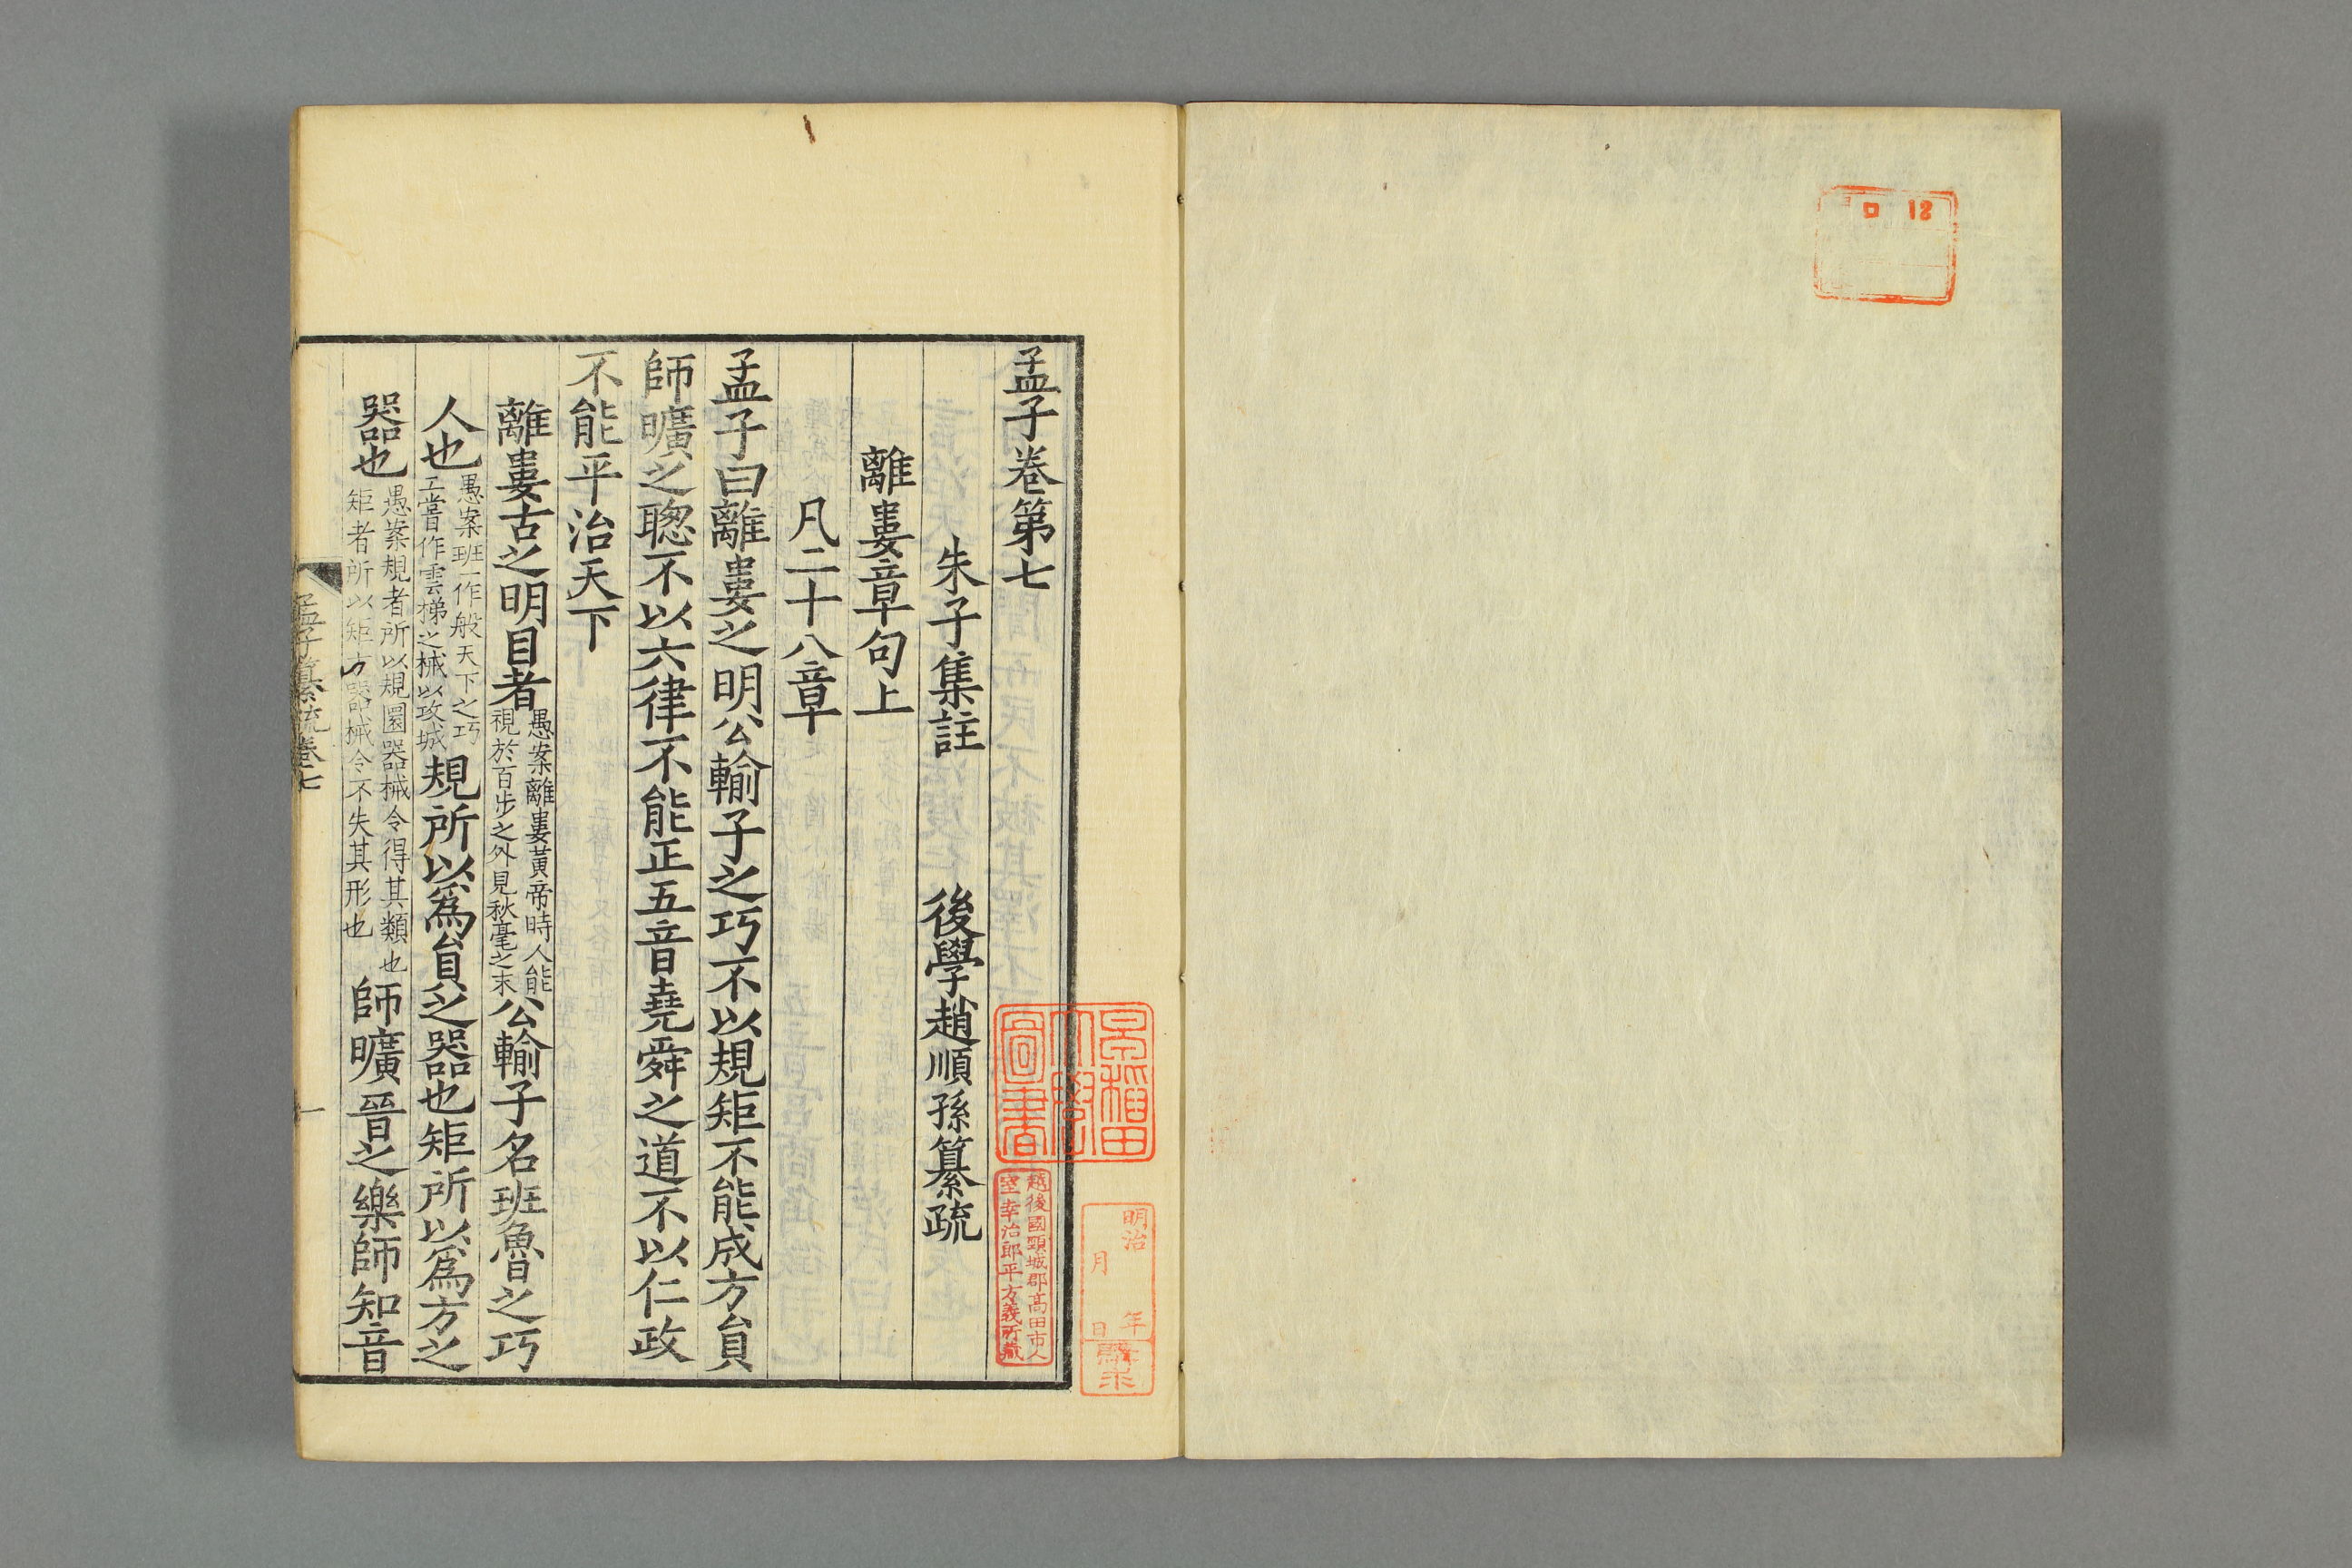 口 12
孟子卷第七
朱子集註 後學趙順孫纂疏
離婁章句上
凡二十八章
孟子曰離婁之明公輸子之巧不以規矩不能成方員
師曠之聰不以六律不能正五音堯舜之道不以仁政
不能平治天下
離婁古之明目者
愚案離婁黃帝時人能
視於百步之外見秋毫之末
公輸子名班魯之巧
人也
愚案班一作般天下之巧
工嘗作雲梯之械以攻城
規所以爲員之器也矩所以爲方之
器也
愚案規者所以規圜器械令得其類也
矩者所以矩方器械令不失其形也
師曠晉之樂師知音
孟子纂疏卷七
一
早稻田
大學
圖書
越後國頸城郡高田市人
室孝治郎平方義所藏
明治 年
月 日